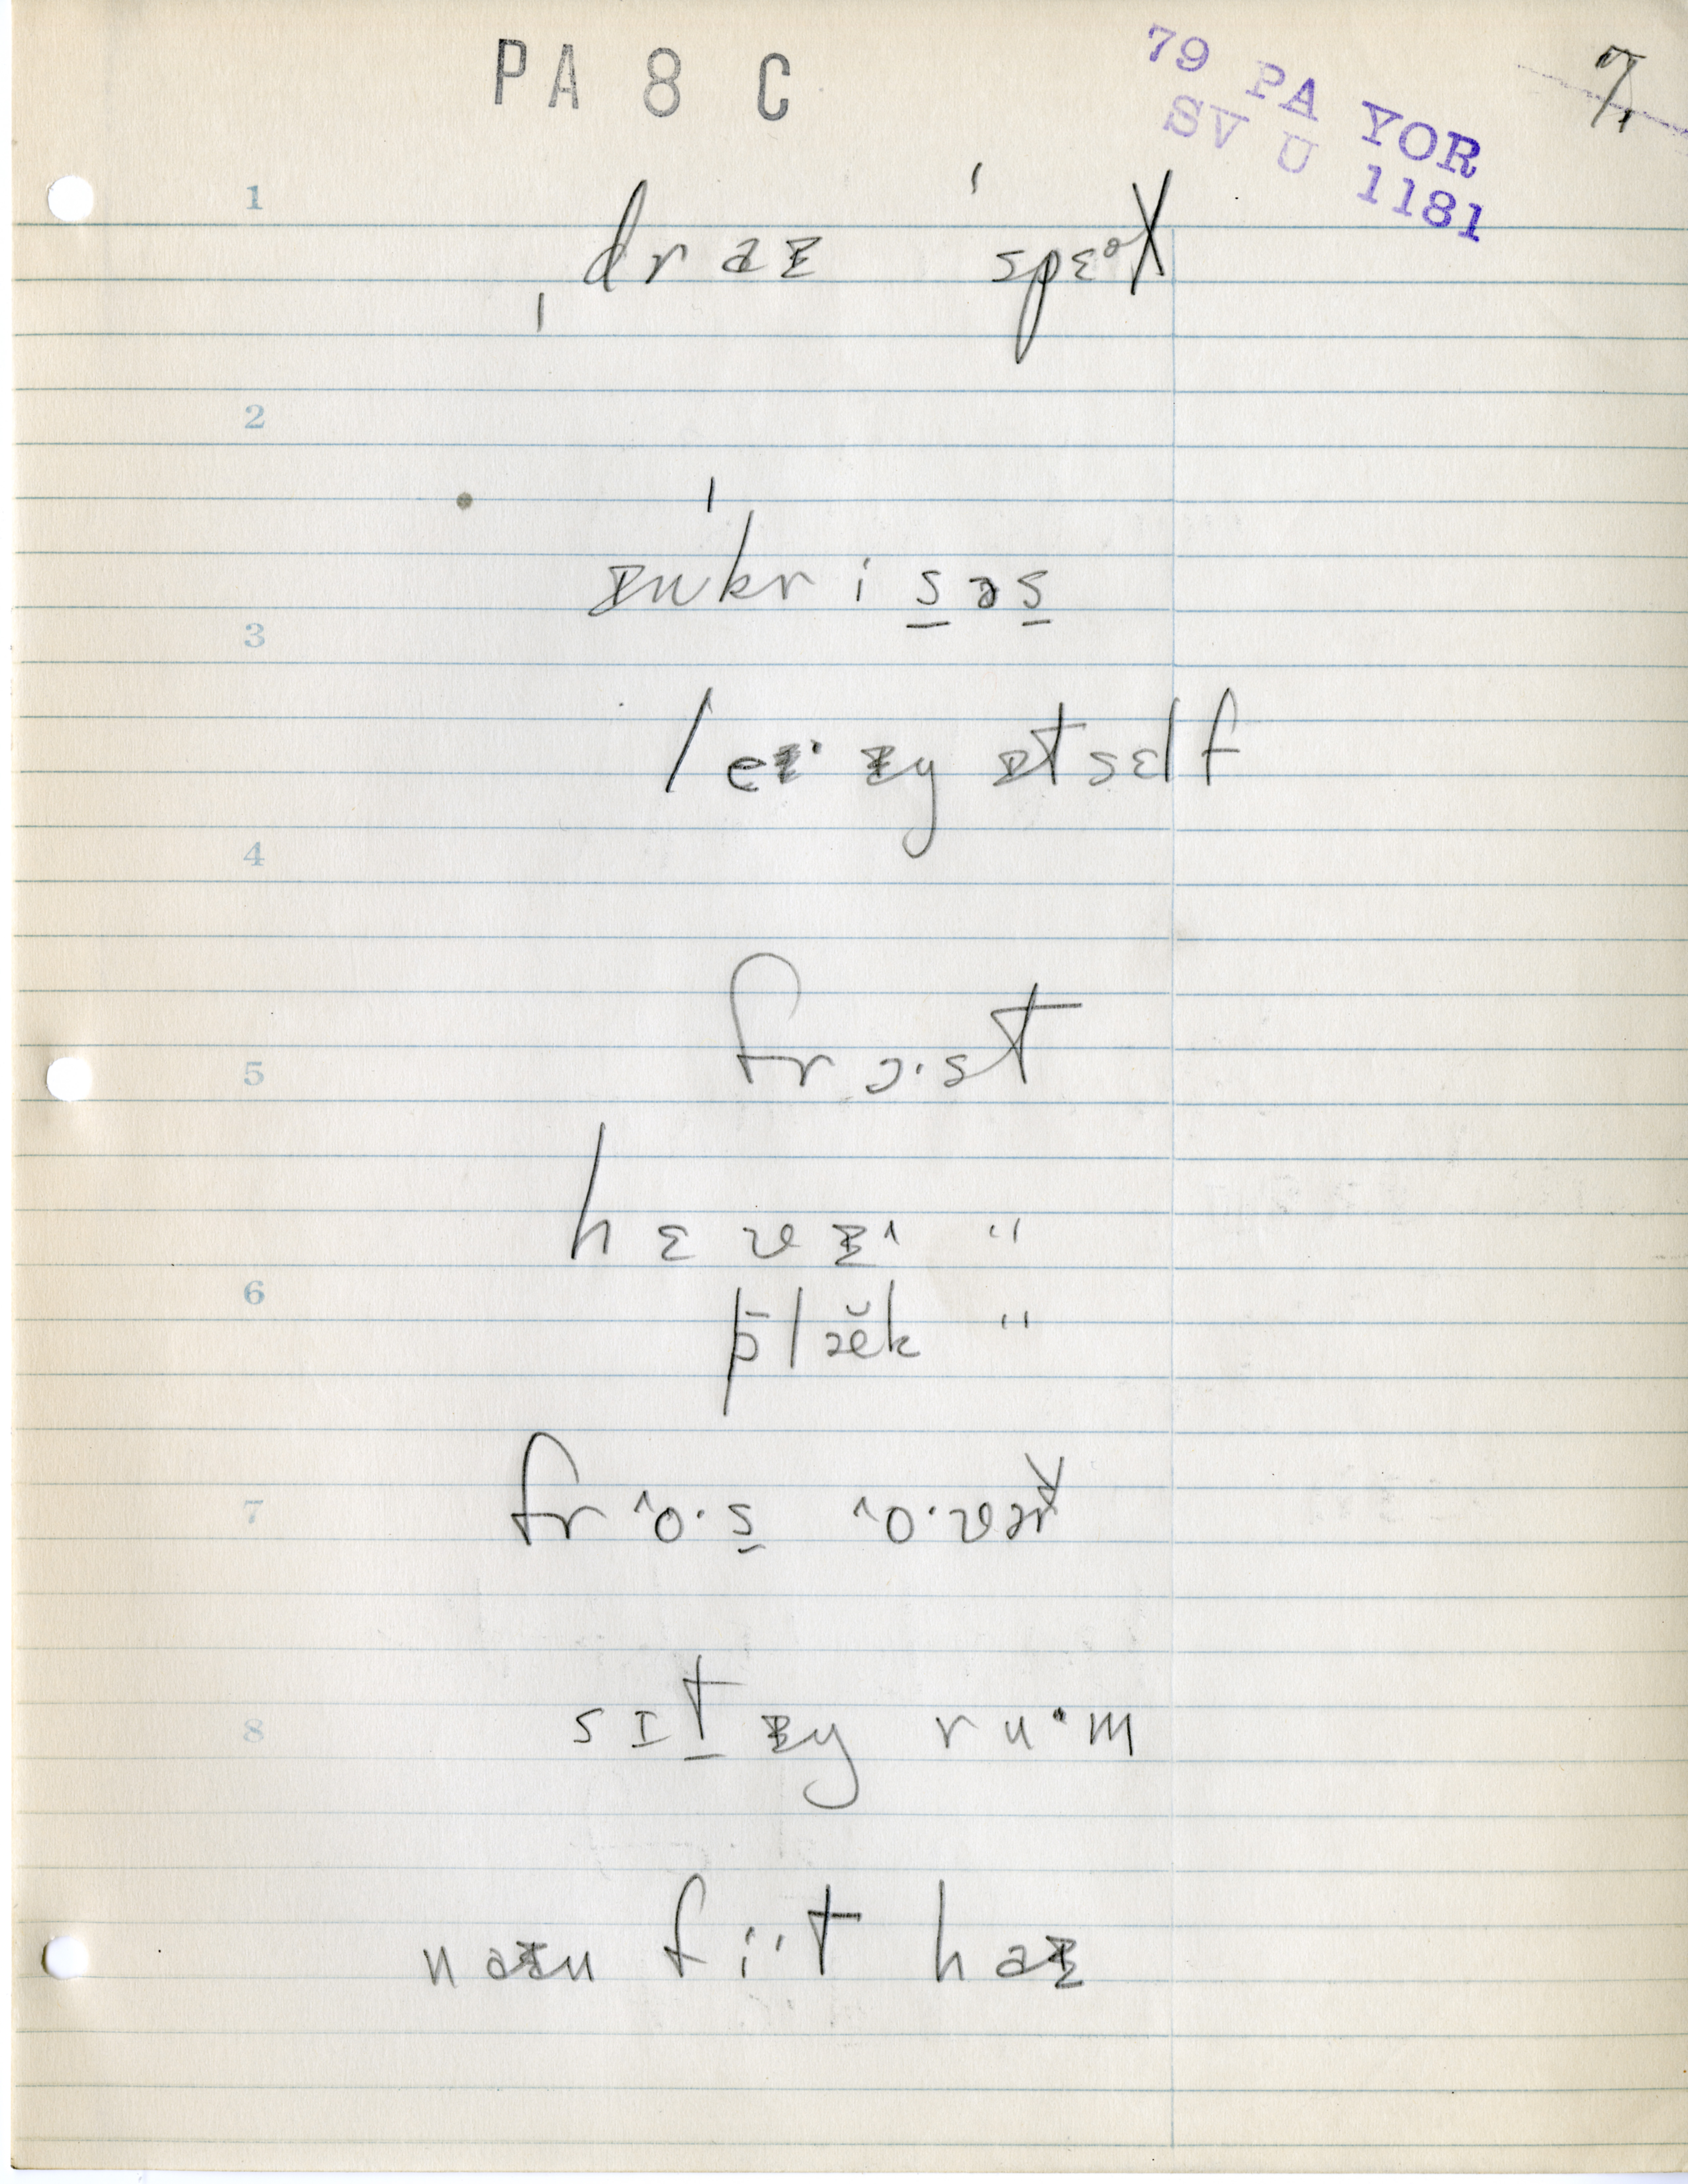 PA 8 C
79 PA YOR
SV U 1181
7
1
ˌdraɪ ˈspɛᵊɫ
2
ɪnˈkrisəs
3
leɪˑzɪŋ ɪtself
4
frɔˑst
5
hɛvɪˑ "
6
blæ̆k "
frˆoˑs ˆoˑvɚ
7
sɪtɪŋ ruˑm
8
naɪn fiˑt haɪ